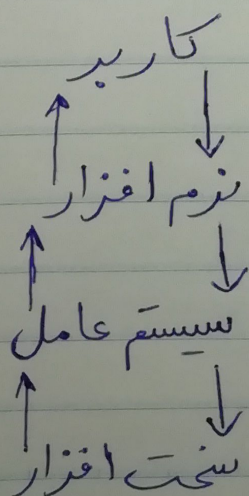 کاربر
نرم افزار
سیستم عامل
سخت افزار